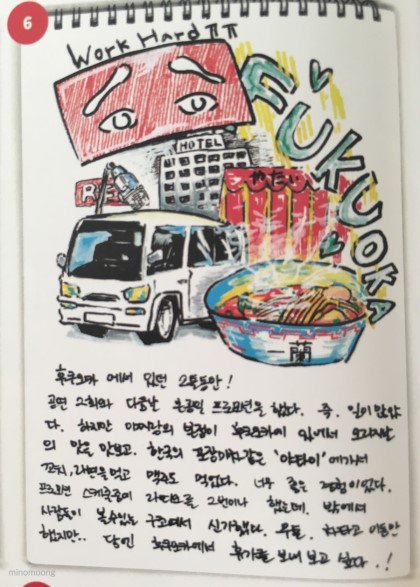 6
Work Hard ㅠㅠ
FUKUOKA
HOTEL
やたい
一蘭
후쿠오카 에서 있던 2틀동안!
공연 2회와 다음날 본공익 프로모션을 했다. 즉. 일이 많았
다. 하지만 이치란의 본점이 후쿠오카에 있어서 오리지날
의 맛을 맛보고. 한국의 포장마차같은 '야타이'에가서
꼬치, 라면을 먹고 맥주도 먹었다. 너무 좋은 경험이었다.
프로모션 스케줄중에 라디오를 2번이나 했는데. 밖에서
사람들이 볼수있는 구조여서 신기했다. 무튼. 차타고 이동만
했지만.. 다음엔 후쿠오카에서 휴가를 보내 보고 싶다..!
minomoong